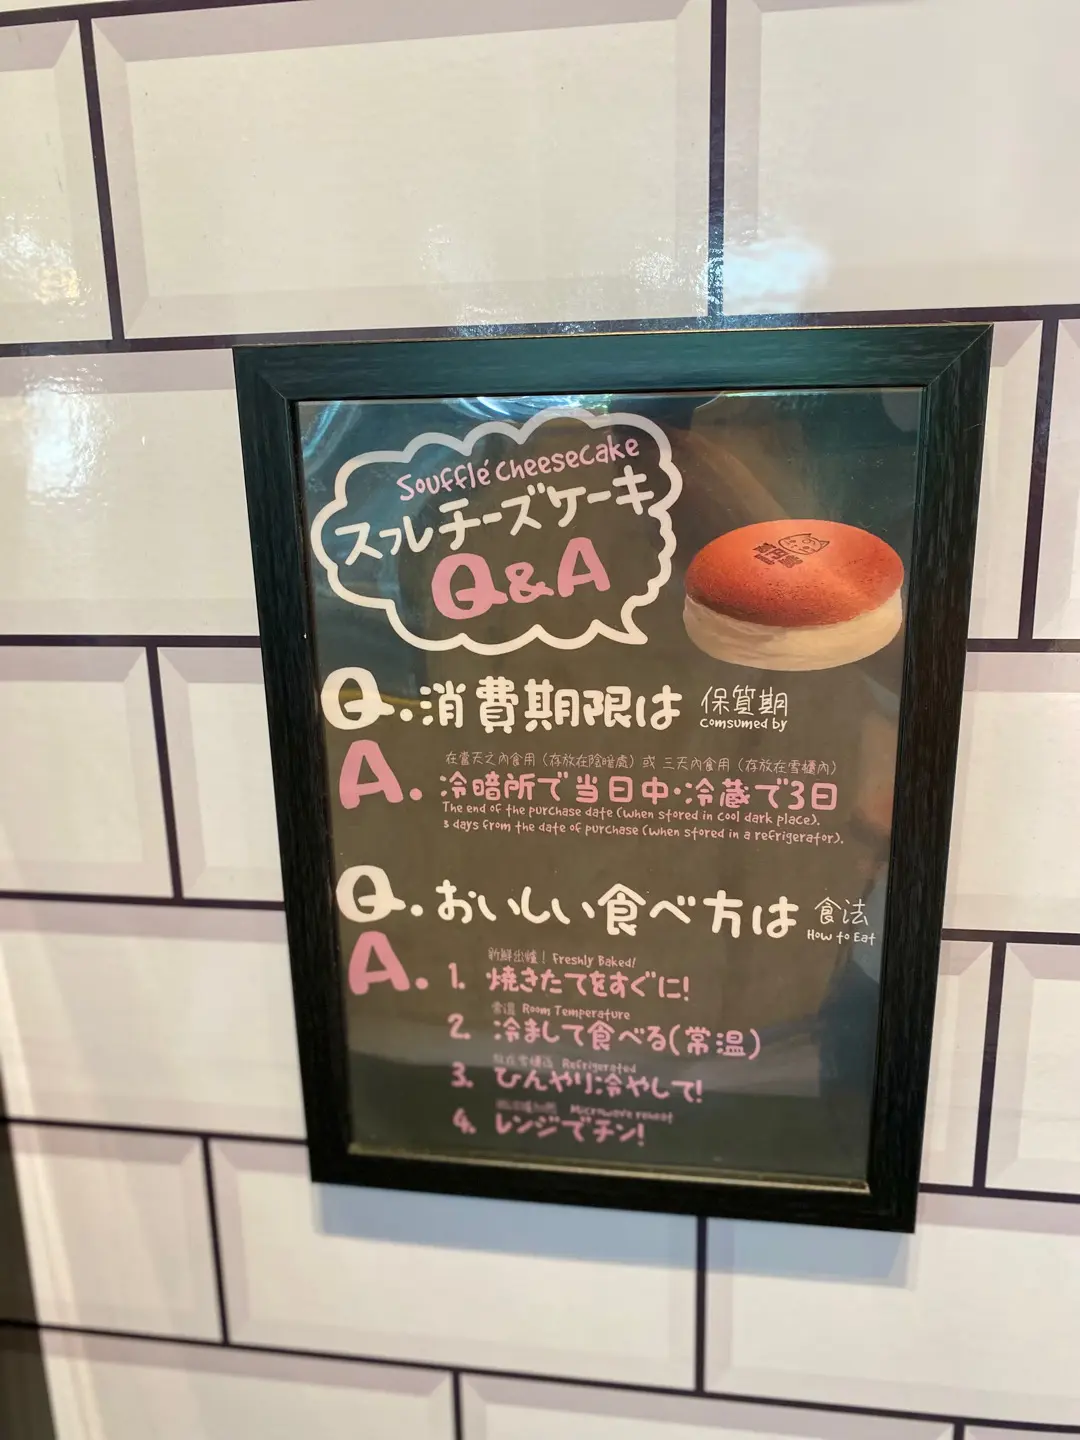 Soufflé Cheesecake
スフレチーズケーキ
Q&A
Q.消費期限は 保質期
Comsumed by
A.
在當天之內食用（存放在陰暗處）或 三天內食用（存放在雪櫃內）
冷暗所で当日中・冷蔵で3日
The end of the purchase date (when stored in cool dark place).
3 days from the date of purchase (when stored in a refrigerator).
Q.おいしい食べ方は 食法
How to Eat
A.
新鮮出爐！Freshly Baked!
1. 焼きたてをすぐに!
常溫 Room Temperature
2. 冷まして食べる(常温)
Refrigerated
3. ひんやり冷やして!
Microwave reheat
4. レンジでチン!